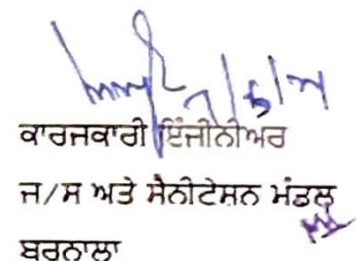 ਕਾਰਜਕਾਰੀ ਇੰਜੀਨੀਅਰ
ਜ/ਸ ਅਤੇ ਸੈਨੀਟੇਸ਼ਨ ਮੰਡਲ
ਬਰਨਾਲਾ